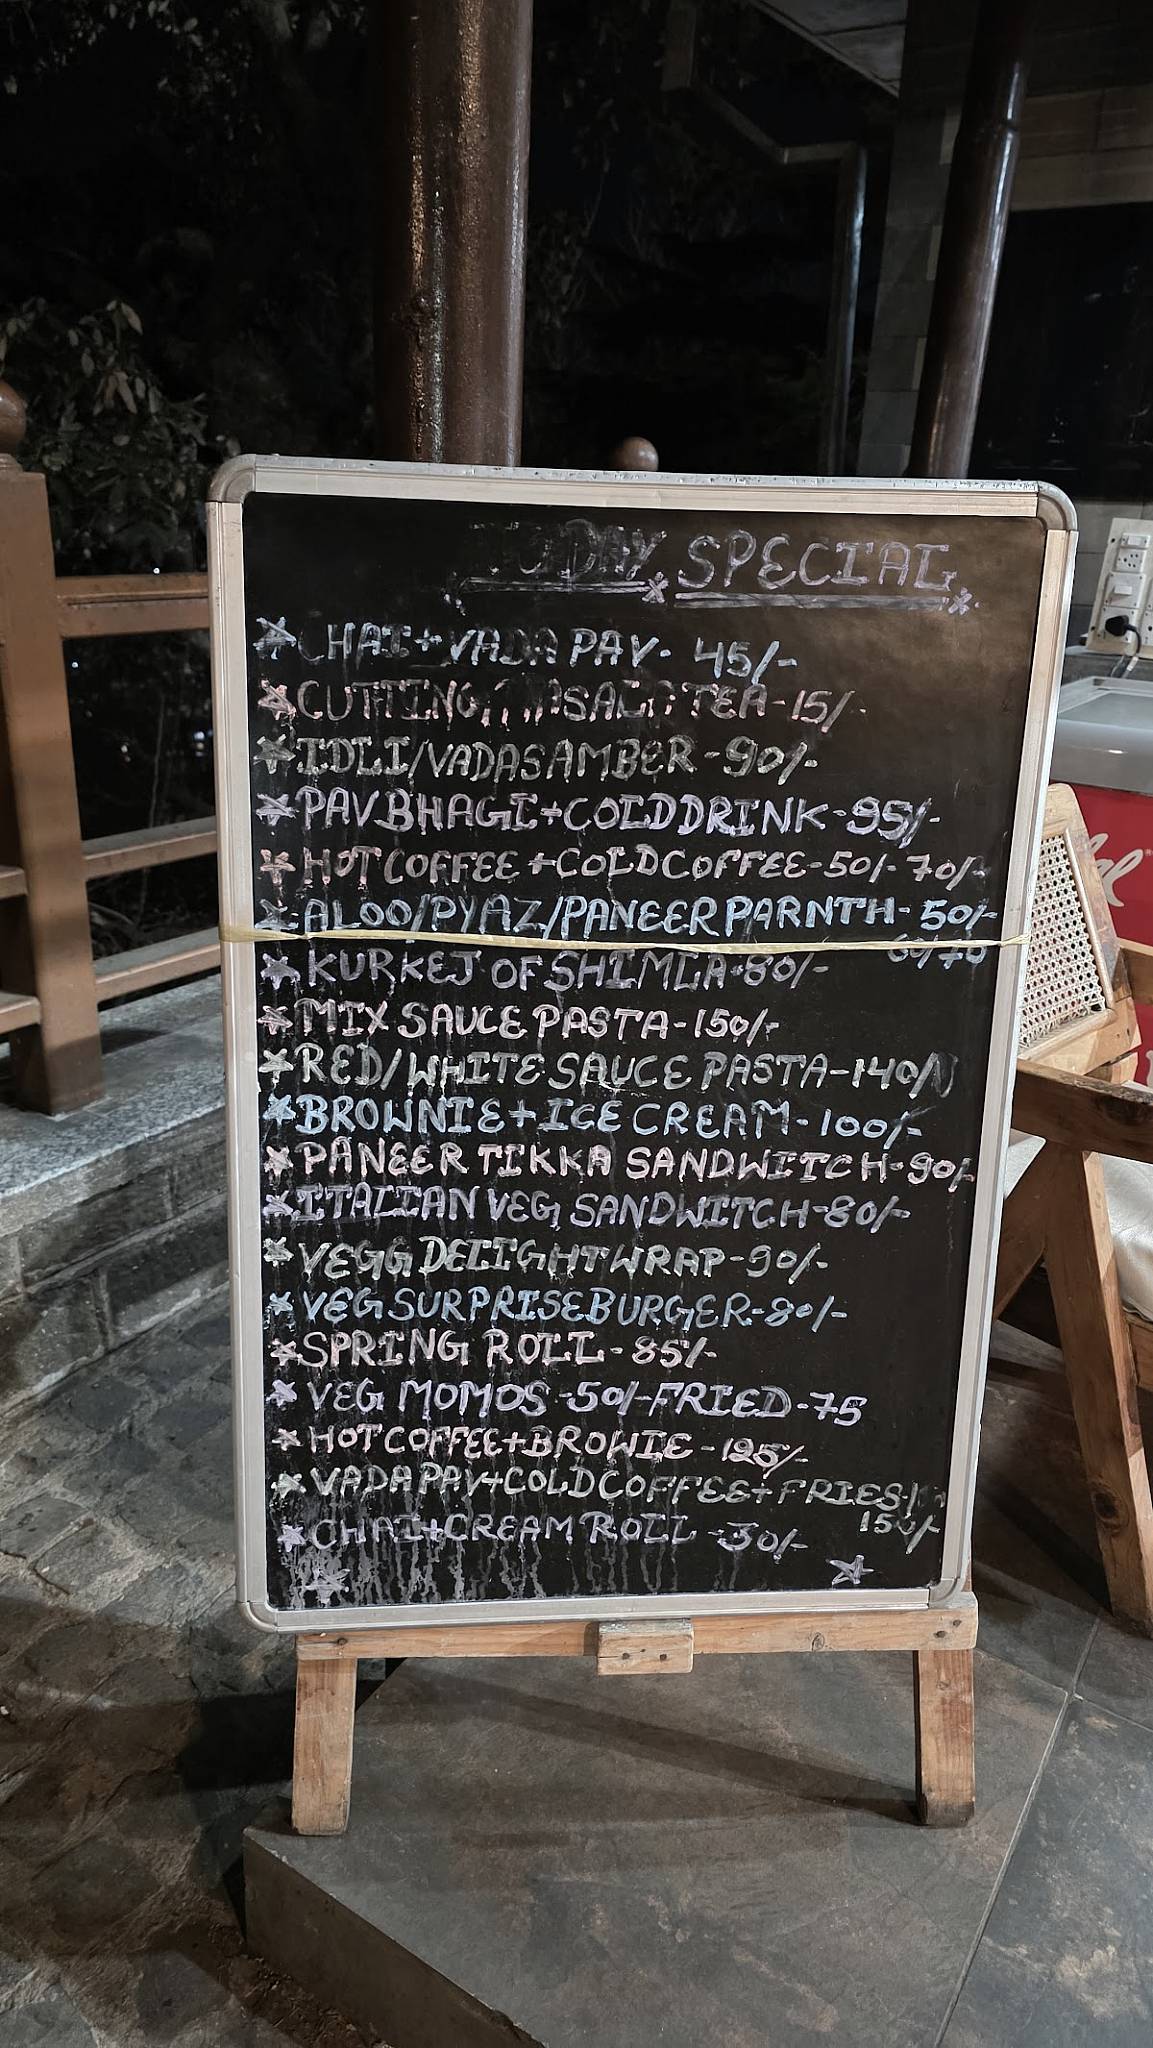 TODAY SPECIAL
CHAI+VADA PAV- 45/-
CUTTING MASALA TEA-15/-
IDLI/VADASAMBER-90/-
PAVBHAGI+COLDDRINK-95/-
HOT COFFEE+COLDCOFFEE-50/-70/-
ALOO/PYAZ/PANEER PARNTH-50/-
60/70
KURKEJ OF SHIMLA-80/-
MIX SAUCE PASTA-150/-
RED/WHITE SAUCE PASTA-140/
BROWNIE+ICE CREAM-100/-
PANEER TIKKA SANDWITCH-90/-
ITALIAN VEG SANDWITCH-80/-
VEGG DELIGHT WRAP-90/-
VEG SURPRISE BURGER-80/-
SPRING ROLL-85/-
VEG MOMOS-50/-FRIED-75
HOT COFFEE+BROWIE-125/-
VADA PAV+COLDCOFFEE+FRIES-
150/-
CHAI+CREAM ROLL-30/-